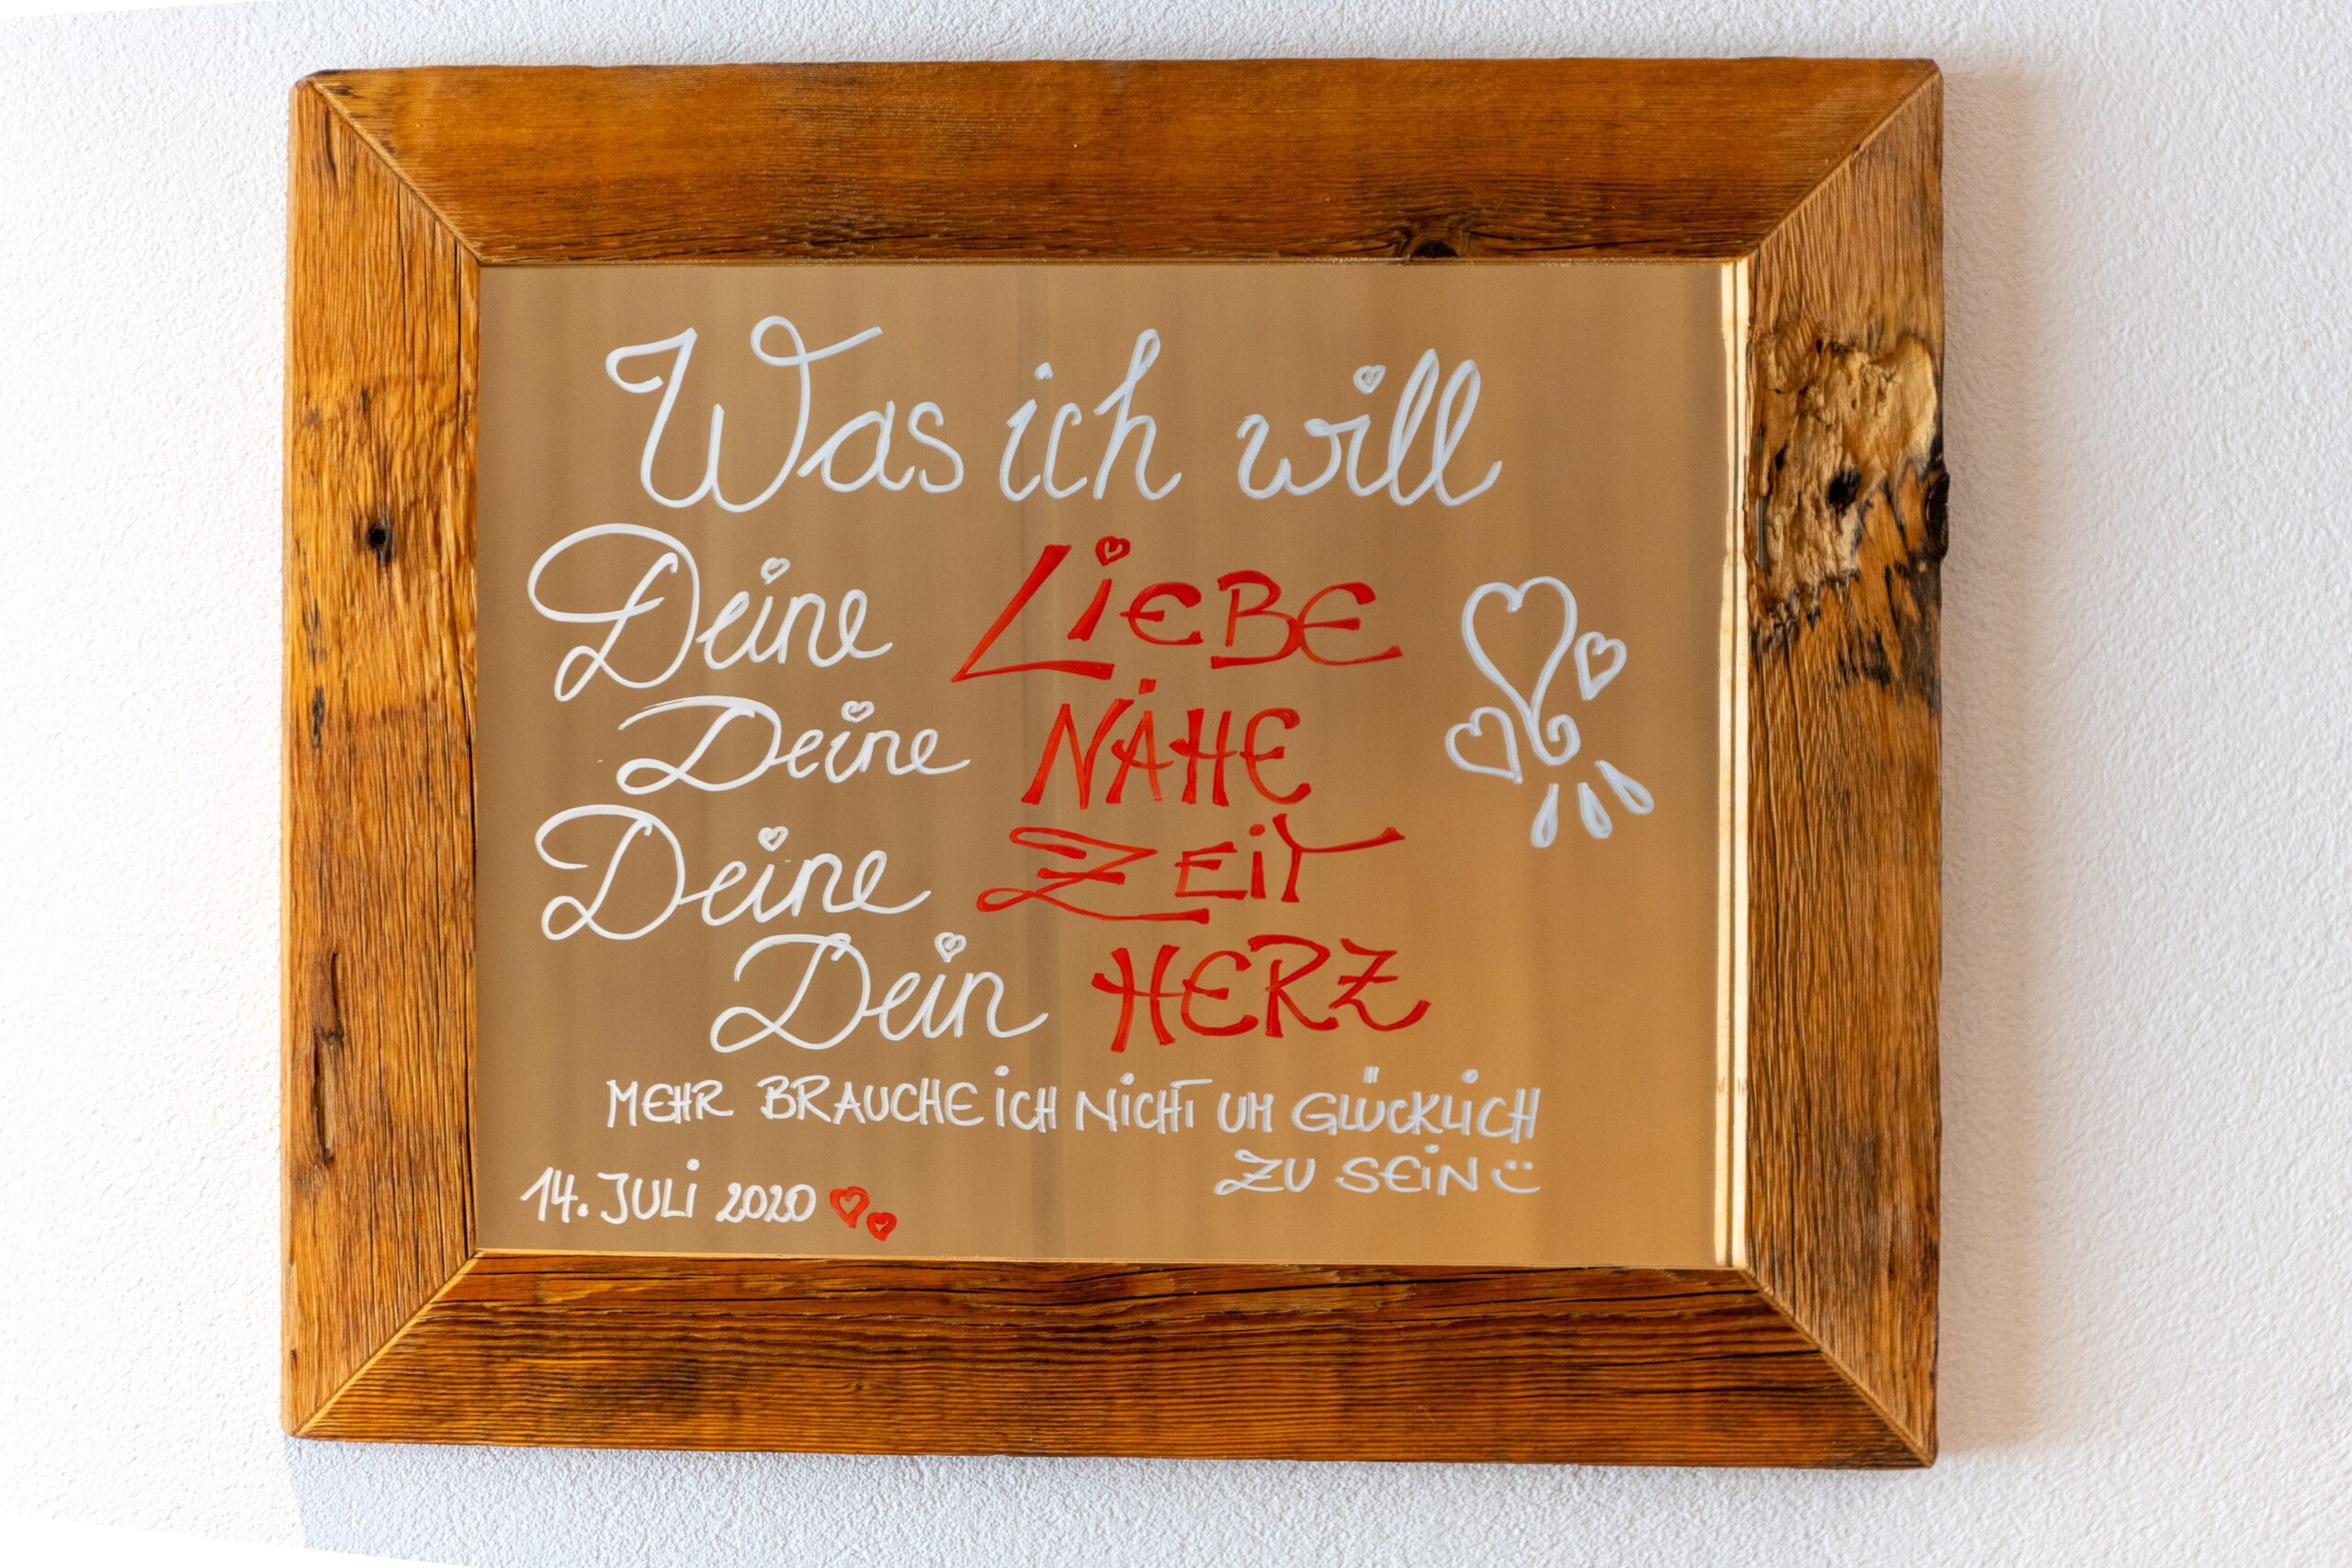 Was ich will
Deine LiEBE
Deine NÄHE
Deine ZEiT
Dein HERZ
MEHR BRAUCHE iCH NiCHT UM GLÜCKLiCH
ZU SEiN :)
14. JULi 2020